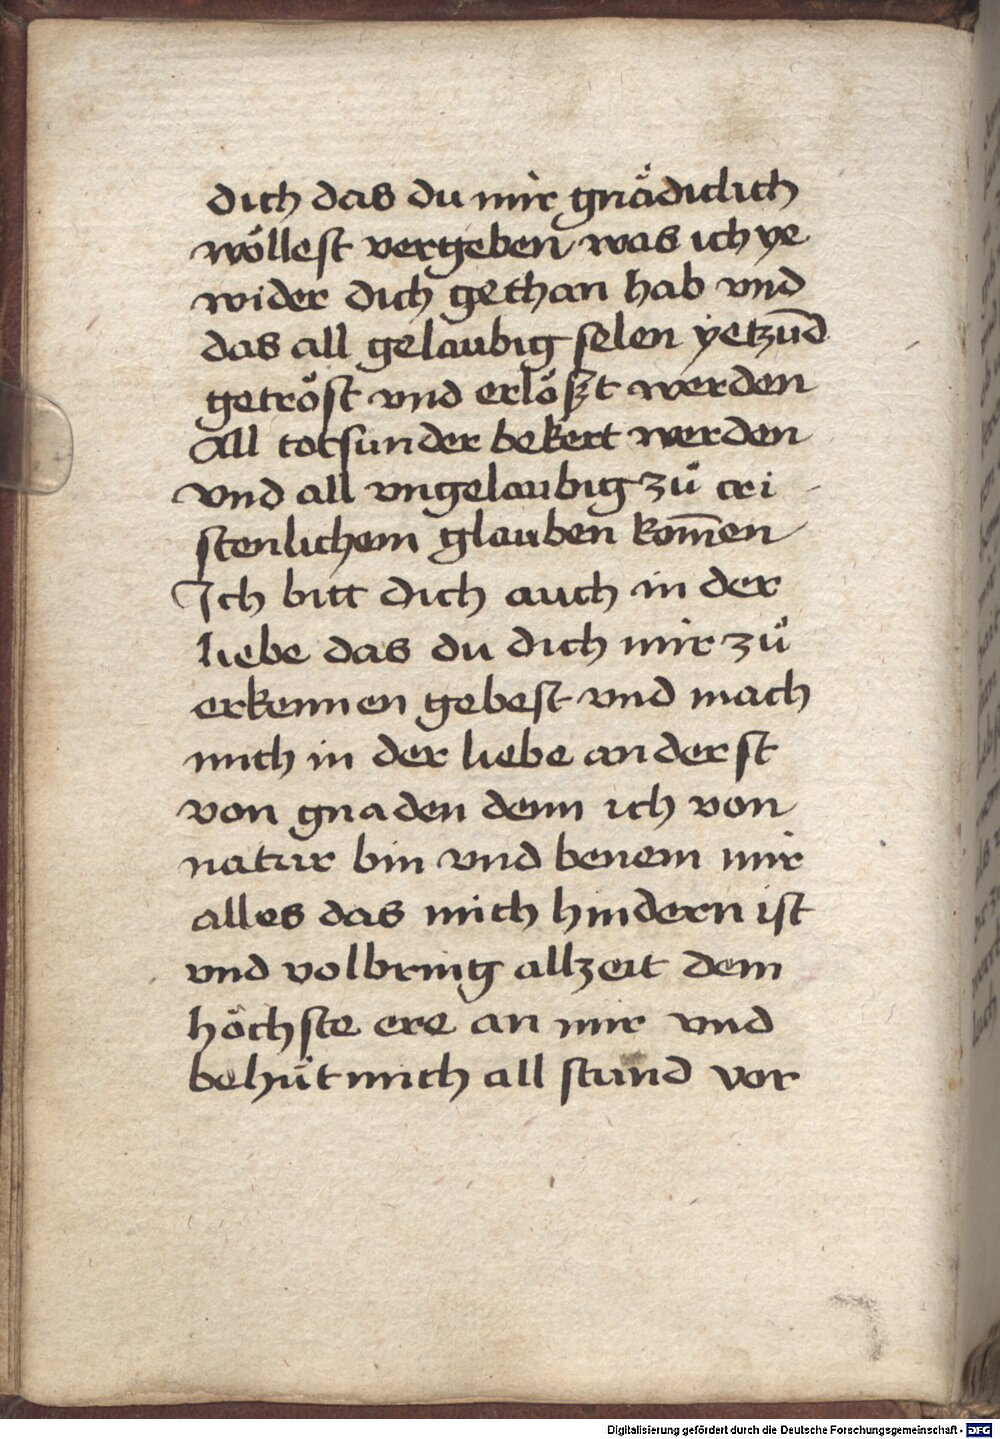 dich das du mir gnädiclich
wöllest vergeben was ich ye
wider dich gethan hab vnd
das all gelaubig selen yetzūd
getröst vnd erlößt werden
All totsunder bekert werden
vnd all vngelaubig zů cri
stenlichem glauben kom̄en
Ich bitt dich auch in der
liebe das du dich mir zů
erkennen gebest vnd mach
mich in der liebe anderst
von gnaden denn ich von
natur bin vnd benem mir
alles das mich hindern ist
vnd volbring allzeit dem
höchste ere an mir vnd
behüt mich all stund vor
Digitalisierung gefördert durch die Deutsche Forschungsgemeinschaft - DFG